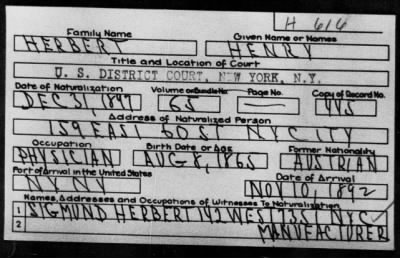 H 616
Family Name Given Name or Names
HERBERT HENRY
Title and Location of Court
U. S. DISTRICT COURT, NEW YORK, N.Y.
Date of Naturalization Volume or Bundle No. Page No. Copy of Record No.
DEC 31, 1897 65 — 445
Address of Naturalized Person
159 EAST 60 ST NY CITY
Occupation Birth Date or Age Former Nationality
PHYSICIAN AUG 8, 1865 AUSTRIAN
Port of Arrival in the United States Date of Arrival
NY NY NOV 10, 1892
Names, Addresses and Occupations of Witnesses To Naturalization
1 SIGMUND HERBERT 142 WEST 135 T NYC
2 MANUFACTURER